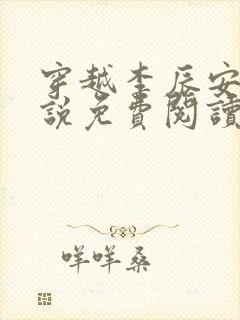 穿越李辰安
說免費閱讀
咩咩桑